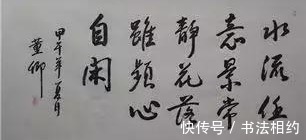 水流任
意景常
静花落
雖頻心
自闲
甲午年夏月
董卿
快传号/书法相约